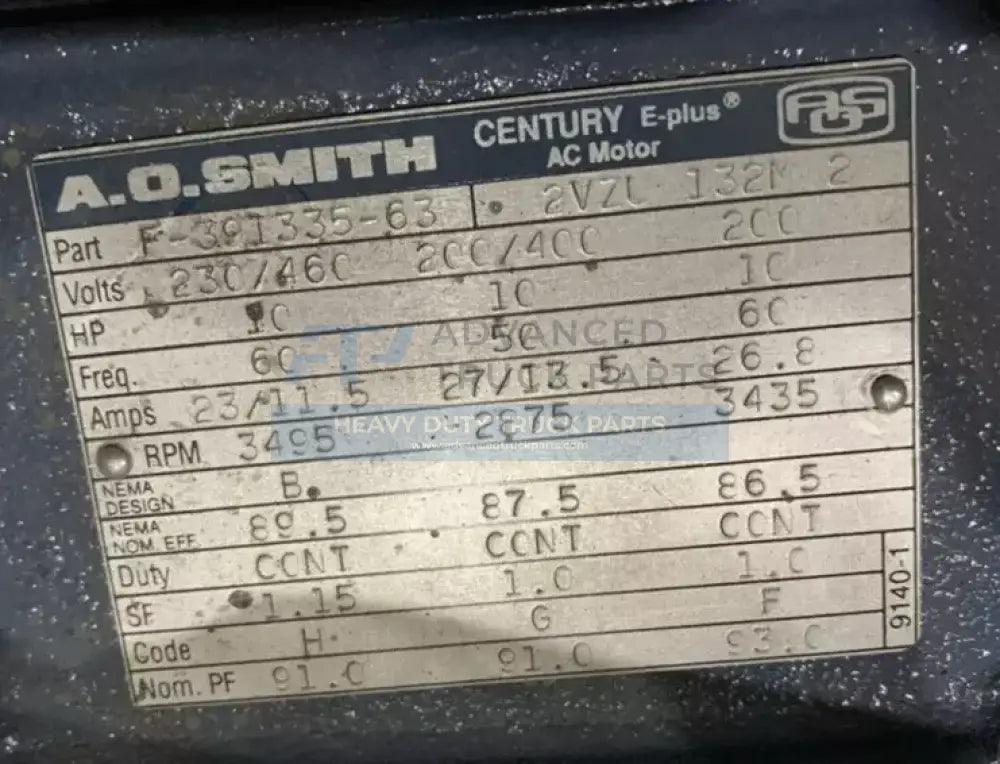 A.O.SMITH CENTURY E-plus® AOS
AC Motor
Part F-391335-63 2VZL 132M 2
Volts 230/460 200/400 200
HP 10 10 10
Freq. 60 50 60
Amps 23/11.5 27/13.5 26.8
RPM 3495 2875 3435
NEMA DESIGN B
NEMA NOM. EFF. 89.5 87.5 86.5
Duty CONT CONT CONT
SF 1.15 1.0 1.0
Code H G F
Nom. PF 91.0 91.0 93.0
9140-1
ADVANCED
TRUCK PARTS
HEAVY DUTY TRUCK PARTS
www.advancedtruckparts.com